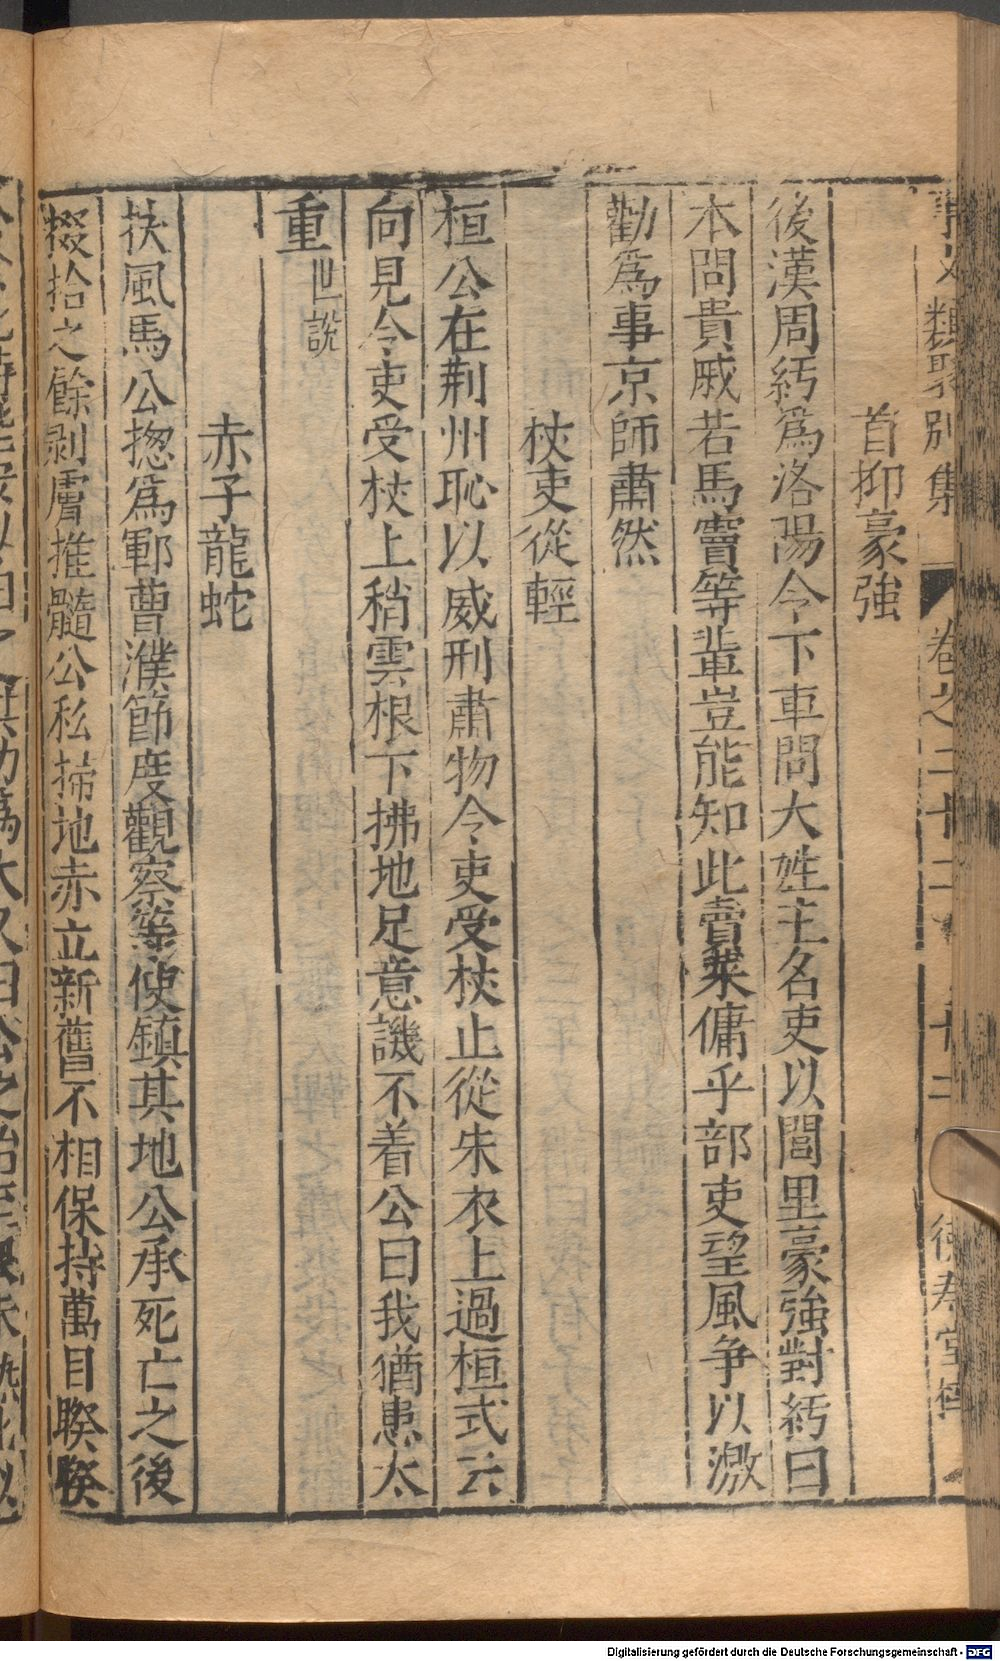 類聚別集 卷之二十二
首抑豪強
後漢周紆為洛陽令下車問大姓主名吏以閭里豪強對紆曰
本問貴戚若馬竇等輩豈能知此賣菜傭乎部吏望風争以激
勸為事京師肅然
杖吏從輕
桓公在荆州恥以威刑肅物令吏受杖止從朱衣上過桓式云
向見令吏受杖上稍雲根下拂地足意譏不着公曰我猶患太
重世說
赤子龍蛇
扶風馬公揔為鄆曹濮節度觀察等使鎮其地公承死亡之後
掇拾之餘剥膚推髓公私掃地赤立新舊不相保持萬目睽睽
Digitalisierung gefördert durch die Deutsche Forschungsgemeinschaft - DFG